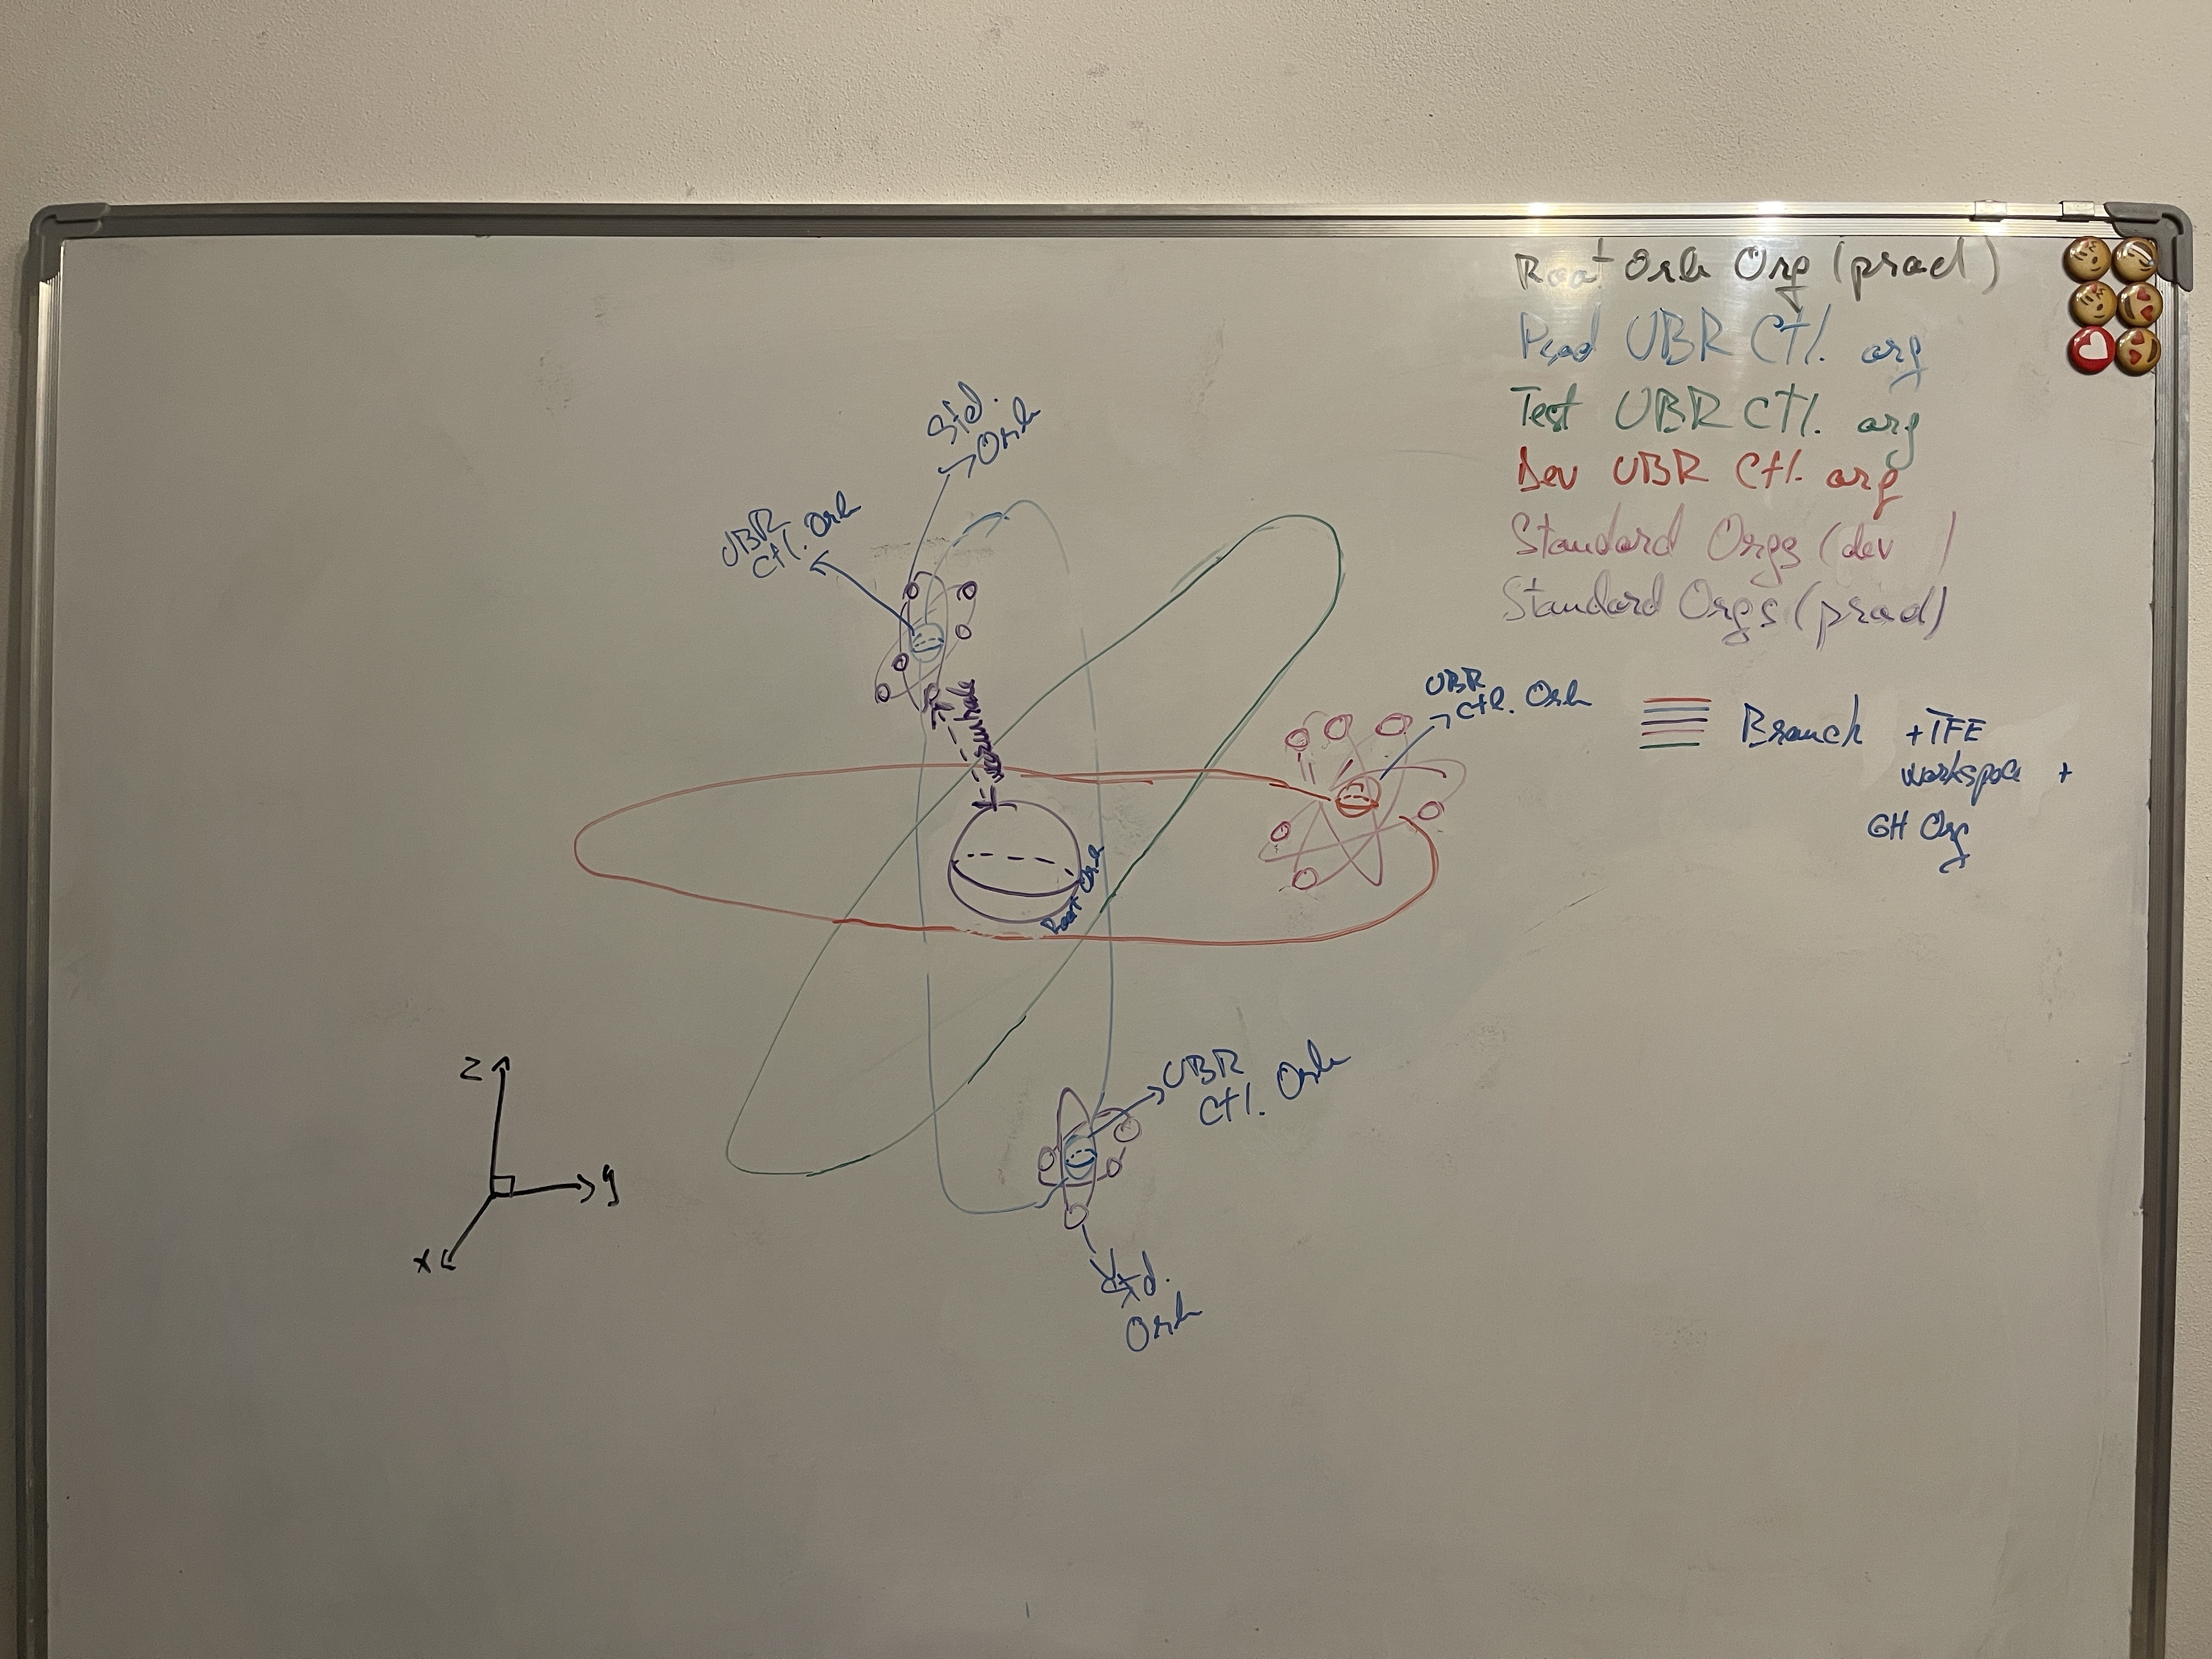 Root Orb Org (prod)
Prod UBR Ctl. org
Test UBR Ctl. org
Dev UBR Ctl. org
Standard Orgs (dev )
Standard Orgs (prod)
Branch +TFE
workspace +
GH Org
Std.
Orb
UBR
Ctl. Orb
wormhole
UBR
Ctl. Orb
Root Orb
z
y
x
UBR
Ctl. Orb
Std.
Orb